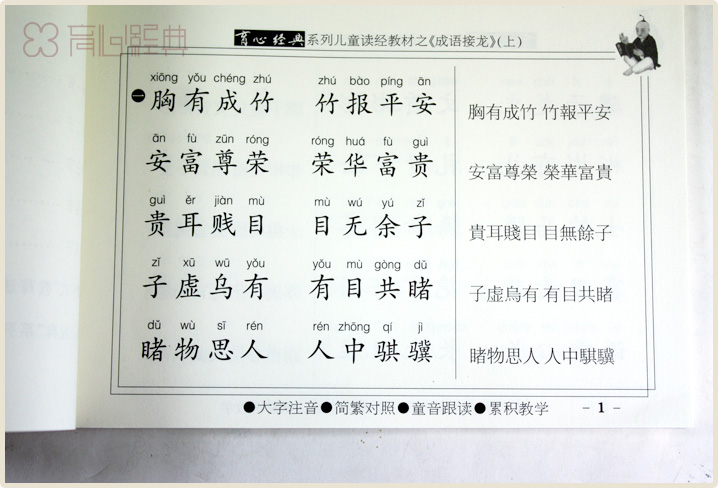 育心经典
育心经典 系列儿童读经教材之《成语接龙》(上)
xiōng yǒu chéng zhú zhú bào píng ān
一 胸有成竹 竹报平安 胸有成竹 竹報平安
ān fù zūn róng róng huá fù guì
安富尊荣 荣华富贵 安富尊榮 榮華富貴
guì ěr jiàn mù mù wú yú zǐ
贵耳贱目 目无余子 貴耳賤目 目無餘子
zǐ xū wū yǒu yǒu mù gòng dǔ
子虚乌有 有目共睹 子虛烏有 有目共睹
dǔ wù sī rén rén zhōng qí jì
睹物思人 人中骐骥 睹物思人 人中騏驥
●大字注音●简繁对照●童音跟读●累积教学 - 1 -